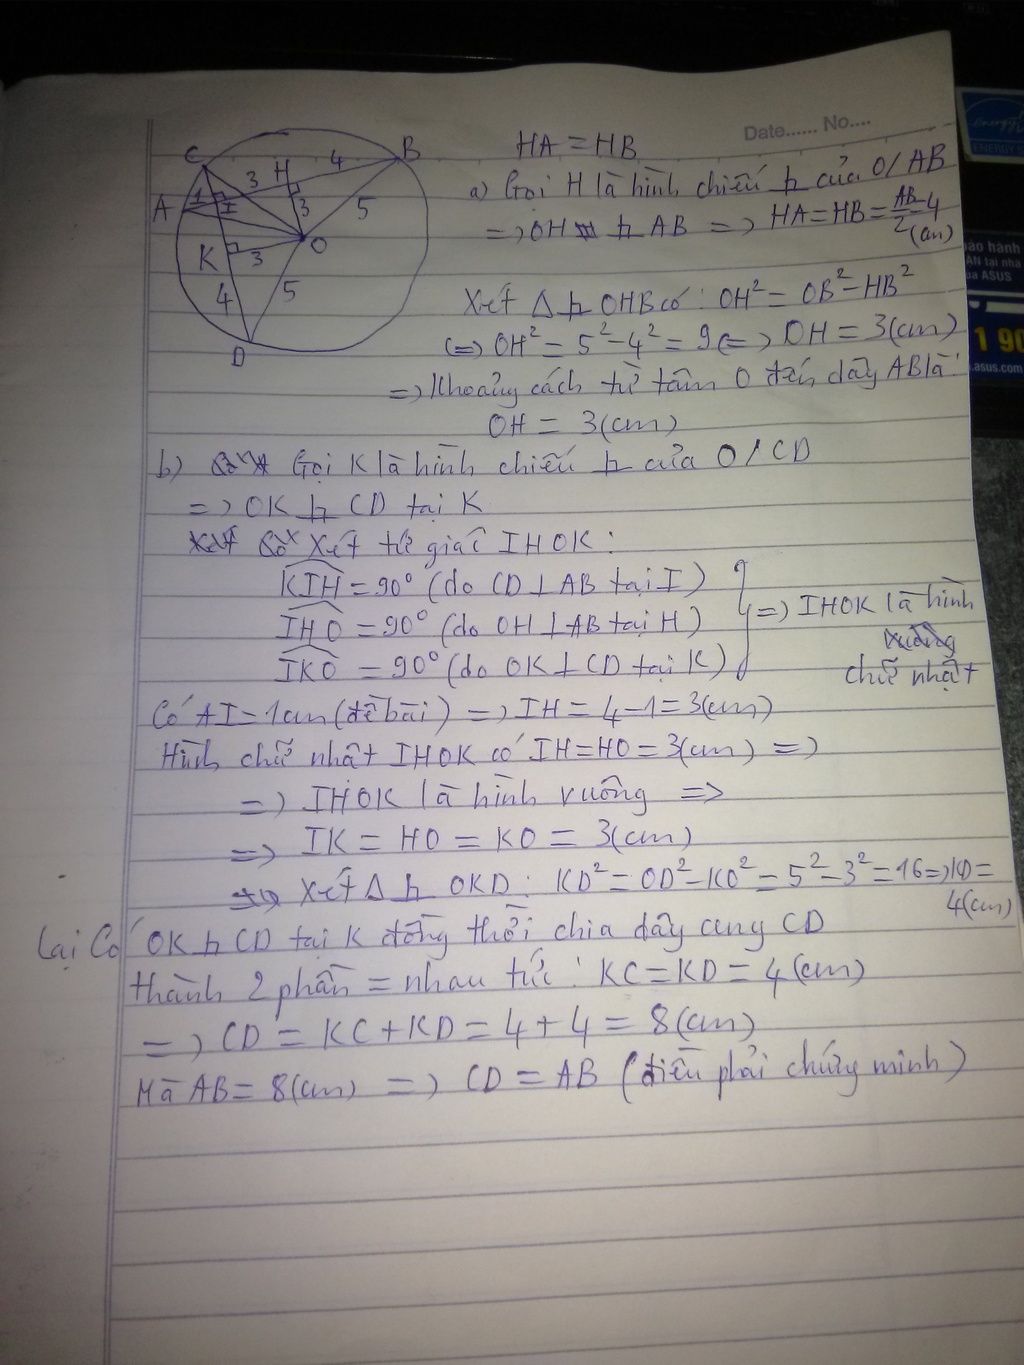 Date...... No....
C
B
A
H
I
K
O
D
3
4
1
3
5
3
4
5
HA = HB
a) Gọi H là hình chiếu ⊥ của O/AB
=> OH ⊥ AB => HA = HB = AB/2 = 4 (cm)
Xét Δ ⊥ OHB có: OH² = OB² - HB²
(=) OH² = 5² - 4² = 9 (=) OH = 3(cm)
=> Khoảng cách từ tâm O đến dây AB là:
OH = 3(cm)
b) Gọi K là hình chiếu ⊥ của O/CD
=> OK ⊥ CD tại K
Xét tứ giác IHOK:
KIH = 90° (do CD ⊥ AB tại I)
IHO = 90° (do OH ⊥ AB tại H)
IKO = 90° (do OK ⊥ CD tại K)
=> IHOK là hình
vuông
chữ nhật
Có AI = 1cm (đề bài) => IH = 4 - 1 = 3(cm)
Hình chữ nhật IHOK có IH = HO = 3(cm) =>
=> IHOK là hình vuông =>
=> IK = HO = KO = 3(cm)
Xét Δ ⊥ OKD: KD² = OD² - KO² = 5² - 3² = 16 => KD =
4(cm)
Lại Có OK ⊥ CD tại K đồng thời chia dây cung CD
thành 2 phần = nhau tức: KC = KD = 4(cm)
=> CD = KC + KD = 4 + 4 = 8(cm)
Mà AB = 8(cm) => CD = AB (điều phải chứng minh)
ảo hành
AN tại nhà
ủa ASUS
1 90
.asus.com
ENERGY S